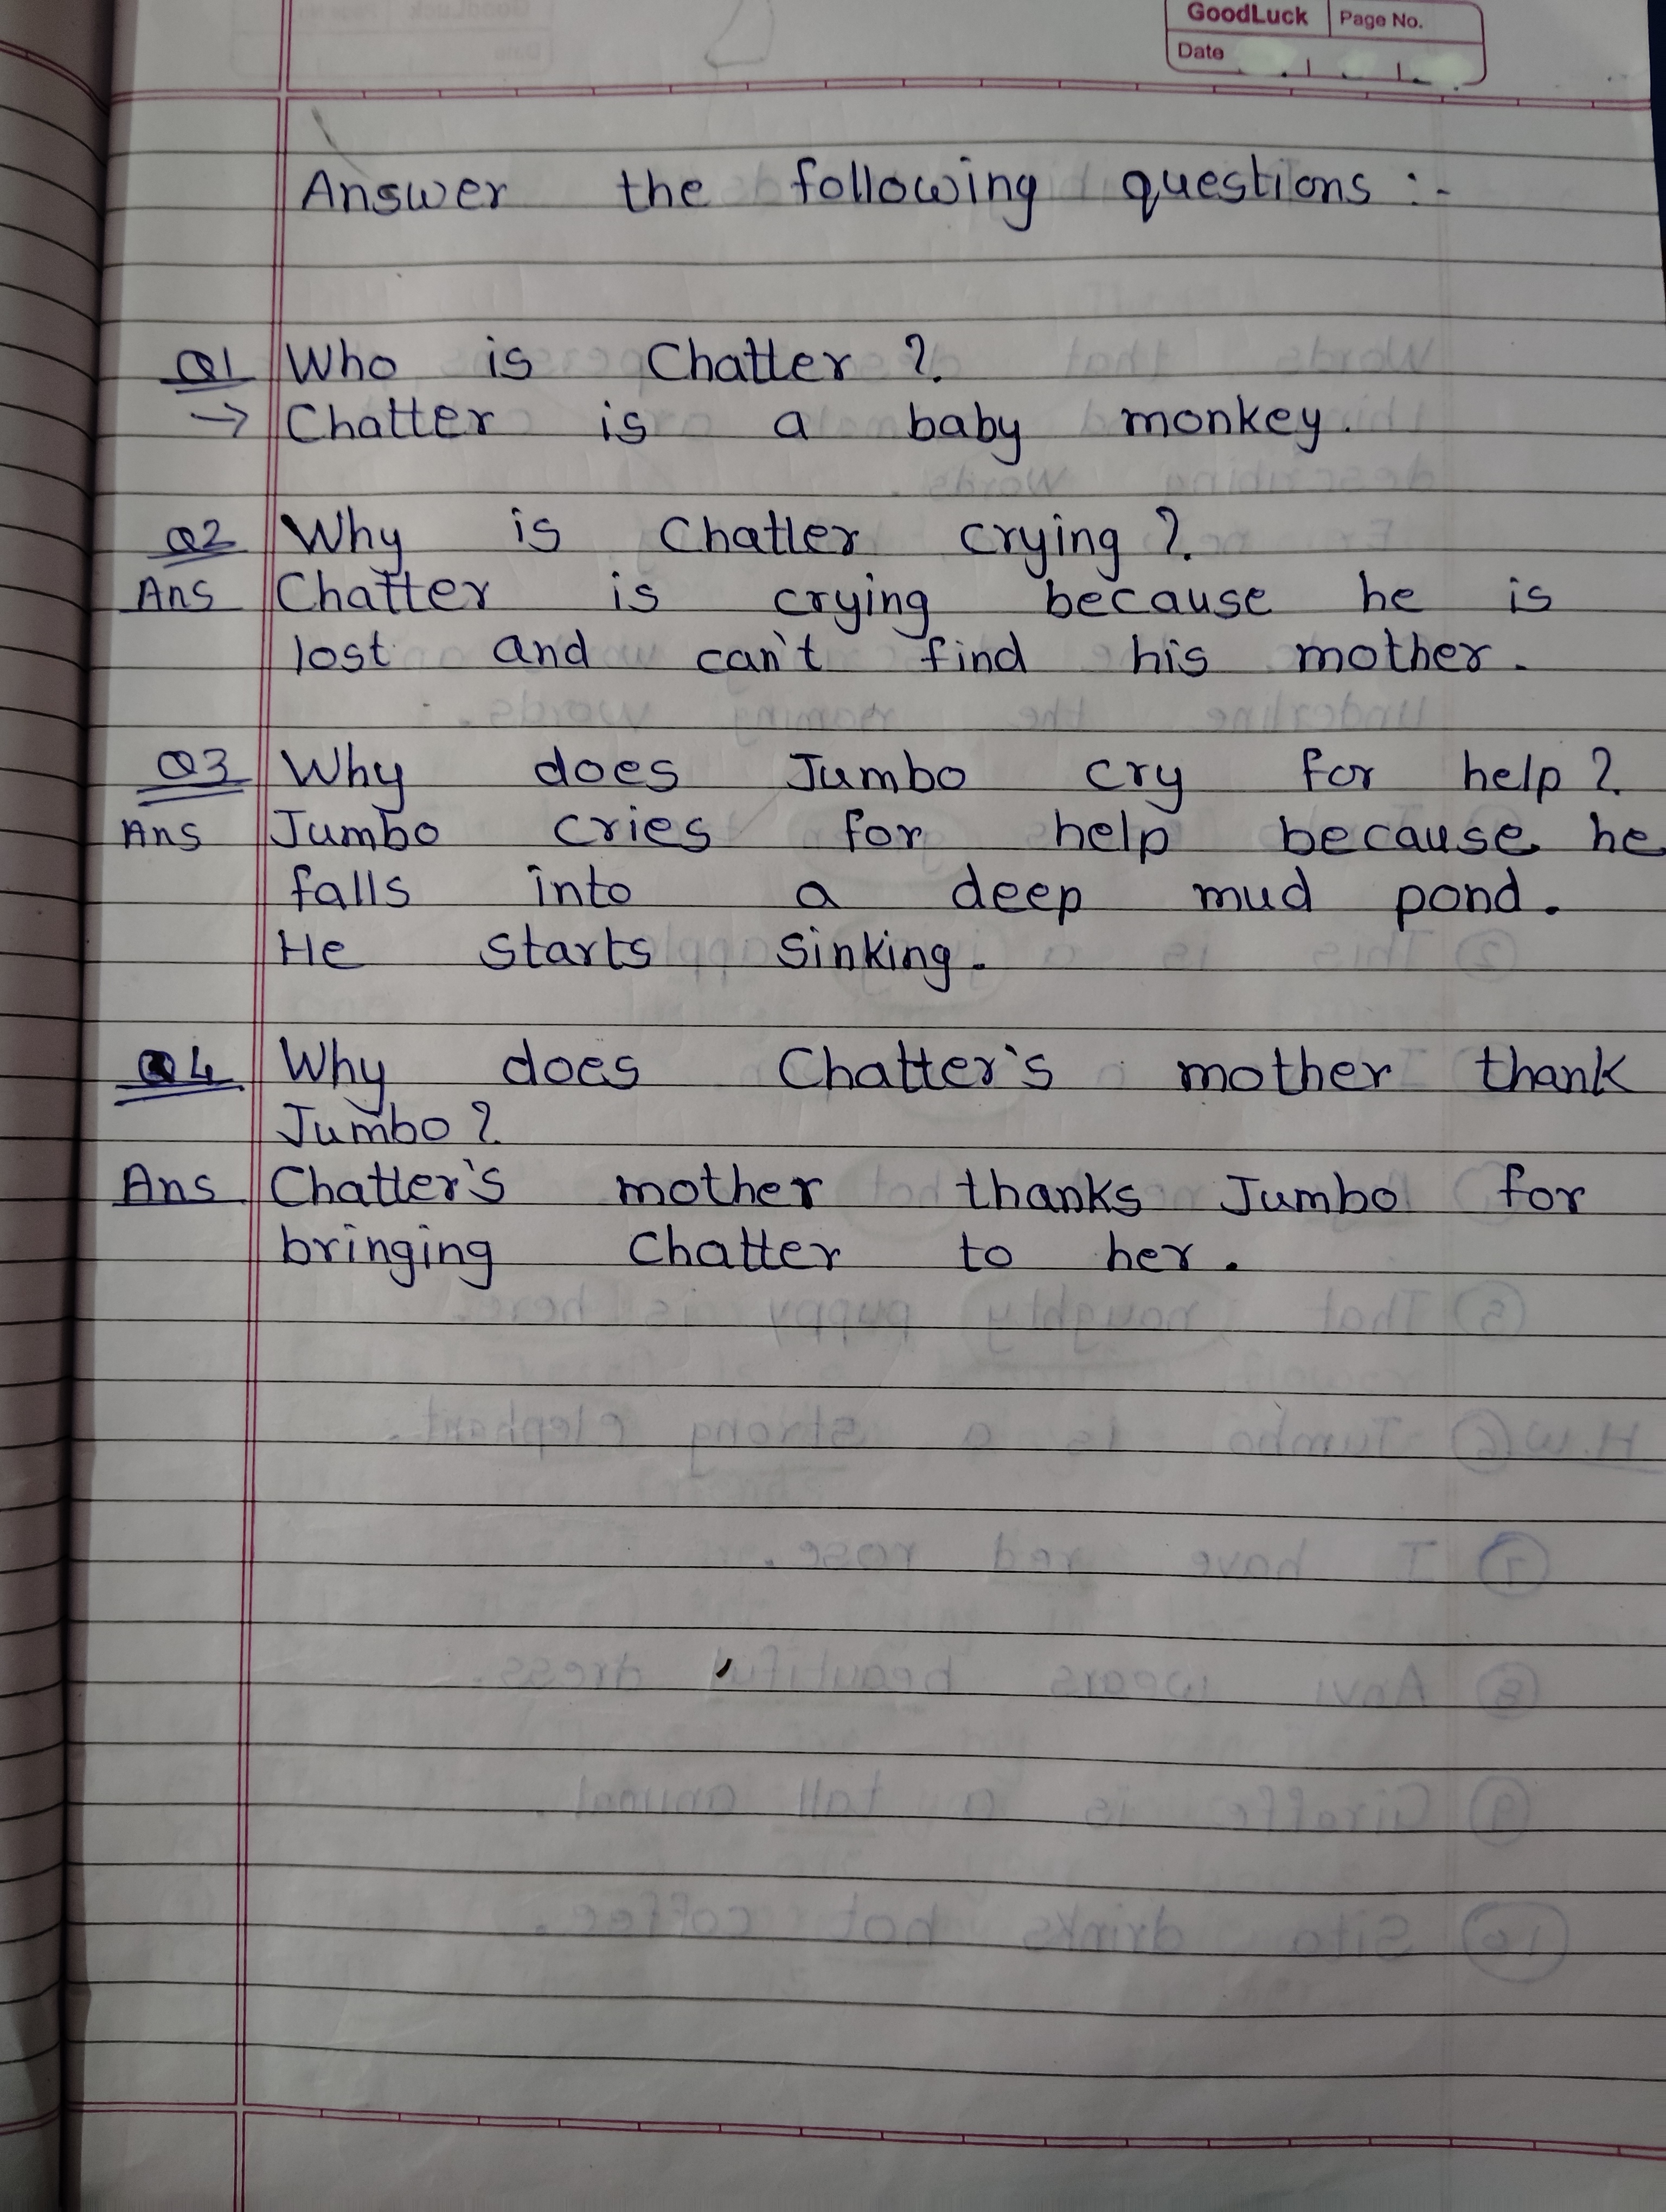 GoodLuck Page No.
Date
Answer the following questions :-
Q1 Who is Chatter ?
→ Chatter is a baby monkey.
Q2 Why is Chatter crying ?
Ans Chatter is crying because he is
lost and can't find his mother.
Q3 Why does Jumbo cry for help ?
Ans Jumbo cries for help because he
falls into a deep mud pond.
He starts sinking.
Q4 Why does Chatter's mother thank
Jumbo ?
Ans Chatter's mother thanks Jumbo for
bringing Chatter to her.